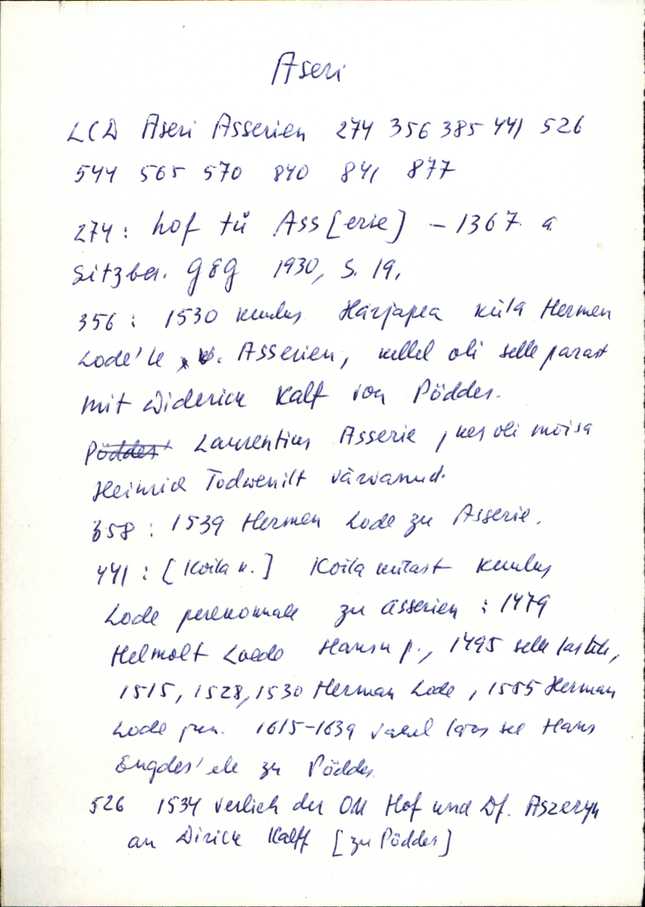 Aseri
LCD Aseri Asserien 274 356 385 441 526
544 565 570 840 841 877
274: hof tů Ass[erie] – 1367. a
Sitzber. GEG 1930, S. 19.
356: 1530 kuulus Härjapea küla Hermen
Lode'le, v. Asserien, kellel oli selle pärast
mit Diderick Kalf von Pöddes.
Pöddes Laurentius Asserie, kes oli mõisa
Heinrich Todwenilt värvanud.
358: 1539 Hermen Lode zu Asserie.
441: [Koila k.] Koila külast kuulus
Lode perekonnale zu Asserien: 1479
Helmolt Loede Hansu p., 1495 selle lastele,
1515, 1528, 1530 Herman Lode, 1555 Herman
Lode jun. 1615–1639 vahel läks see Hans
Engdes'ele zu Pöddes.
526 1534 verlieh der OM Hof und Df. Aszeryn
an Dirick Kalff [zu Pöddes]